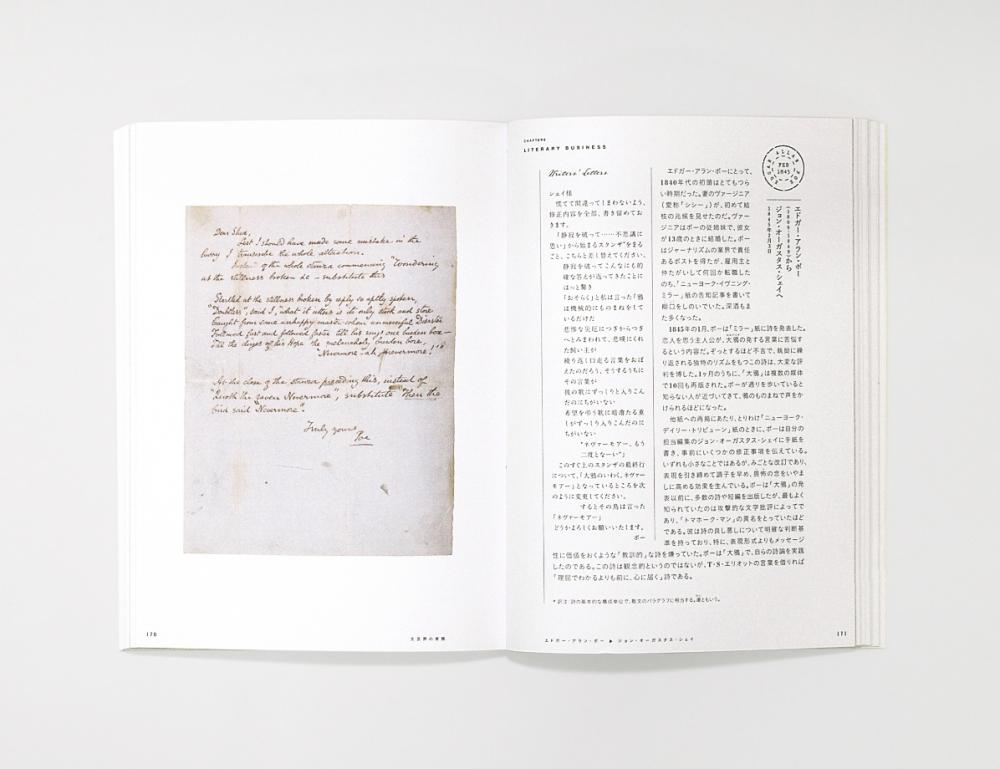 Dear Shea,
Lest I should have made some mistake in the
hurry I transcribe the whole alteration.
Instead of the whole stanza commencing "Wondering
at the stillness broken &c — substitute this
Startled at the stillness broken by reply so aptly spoken,
"Doubtless", said I, "what it utters is its only stock and store
Caught from some unhappy master whom unmerciful Disaster
Followed fast and followed faster till his songs one burden bore —
Till the dirges of his Hope the melancholy burden bore,
"Nevermore" — ah, nevermore!"
At the close of the stanza preceding this, instead of
"Quoth the raven Nevermore", substitute "Then the
bird said "Nevermore".
Truly yours
Poe
170
文芸界の実務
CHAPTER6
LITERARY BUSINESS
Writers' Letters
シェイ様
慌てて間違ってしまわないよう、
修正内容を全部、書き留めてお
きます。
「静寂を破って……不思議に
思い」から始まるスタンザ*をまる
ごと、こちらと差し替えてください。
静寂を破ってこんなにも的
確な答えが返ってきたことに
はっと驚き
「おそらく」と私は言った「鴉
は機械的にものまねをして
いるだけだ
悲惨な災厄につぎからつぎ
へとみまわれて、悲嘆にくれ
た飼い主が
繰り返し口走る言葉をおぼ
えたのだろう、そうするうちに
その言葉が
彼の歌にずっしりと入りこん
だのにちがいない
希望を弔う歌に暗澹たる重
しがずっしり入りこんだのに
ちがいない
“ネヴァーモアー、もう
二度となーい”」
このすぐ上のスタンザの最終行
について、「大鴉のいわく、ネヴァー
モアー」となっているところを次
のように変更してください。
するとその鳥は言った
「ネヴァーモアー」
どうかよろしくお願いいたします。
ポー
エドガー・アラン・ポーにとって、
1840年代の初頭はとてもつら
い時期だった。妻のヴァージニア
(愛称「シシー」)が、初めて結
核の兆候を見せたのだ。ヴァー
ジニアはポーの従姉妹で、彼女
が13歳のときに結婚した。ポー
はジャーナリズムの業界で責任
あるポストを得たが、雇用主と
仲たがいして何回か転職した
のち、「ニューヨーク・イヴニング・
ミラー」紙の告知記事を書いて
糊口をしのいでいた。深酒もま
た多くなった。
1845年の1月、ポーは「ミラー」紙に詩を発表した。
恋人を思う主人公が、大鴉の発する言葉に苦悩す
るという内容だ。ぞっとするほど不吉で、執拗に繰
り返される独特のリズムをもつこの詩は、大変な評
判を博した。1ヶ月のうちに、「大鴉」は複数の媒体
で10回も再版された。ポーが通りを歩いていると
知らない人が近づいてきて、鴉のものまねで声をか
けられるほどになった。
他紙への再録にあたり、とりわけ「ニューヨーク・
デイリー・トリビューン」紙のときに、ポーは自分の
担当編集のジョン・オーガスタス・シェイに手紙を
書き、事前にいくつかの修正事項を伝えている。
いずれも小さなことではあるが、みごとな改訂であり、
表現を引き締めて調子を早め、畏怖の念をいやま
しに高める効果を生んでいる。ポーは「大鴉」の発
表以前に、多数の詩や短編を出版したが、最もよく
知られていたのは攻撃的な文学批評によってで
あり、「トマホーク・マン」の異名をとっていたほど
である。彼は詩の良し悪しについて明確な判断基
準を持っており、特に、表現形式よりもメッセージ
性に価値をおくような「教訓的」な詩を嫌っていた。ポーは「大鴉」で、自らの詩論を実践
したのである。この詩は観念的というのではないが、T・S・エリオットの言葉を借りれば
「理屈でわかるよりも前に、心に届く」詩である。
*訳注:詩の基本的な構成単位で、散文のパラグラフに相当する。連ともいう。
EDGAR ALLAN POE
FEB
1845
エドガー・アラン・ポー
(1809–1849)から
ジョン・オーガスタス・シェイへ
1845年2月3日
エドガー・アラン・ポー ▶ ジョン・オーガスタス・シェイ
171